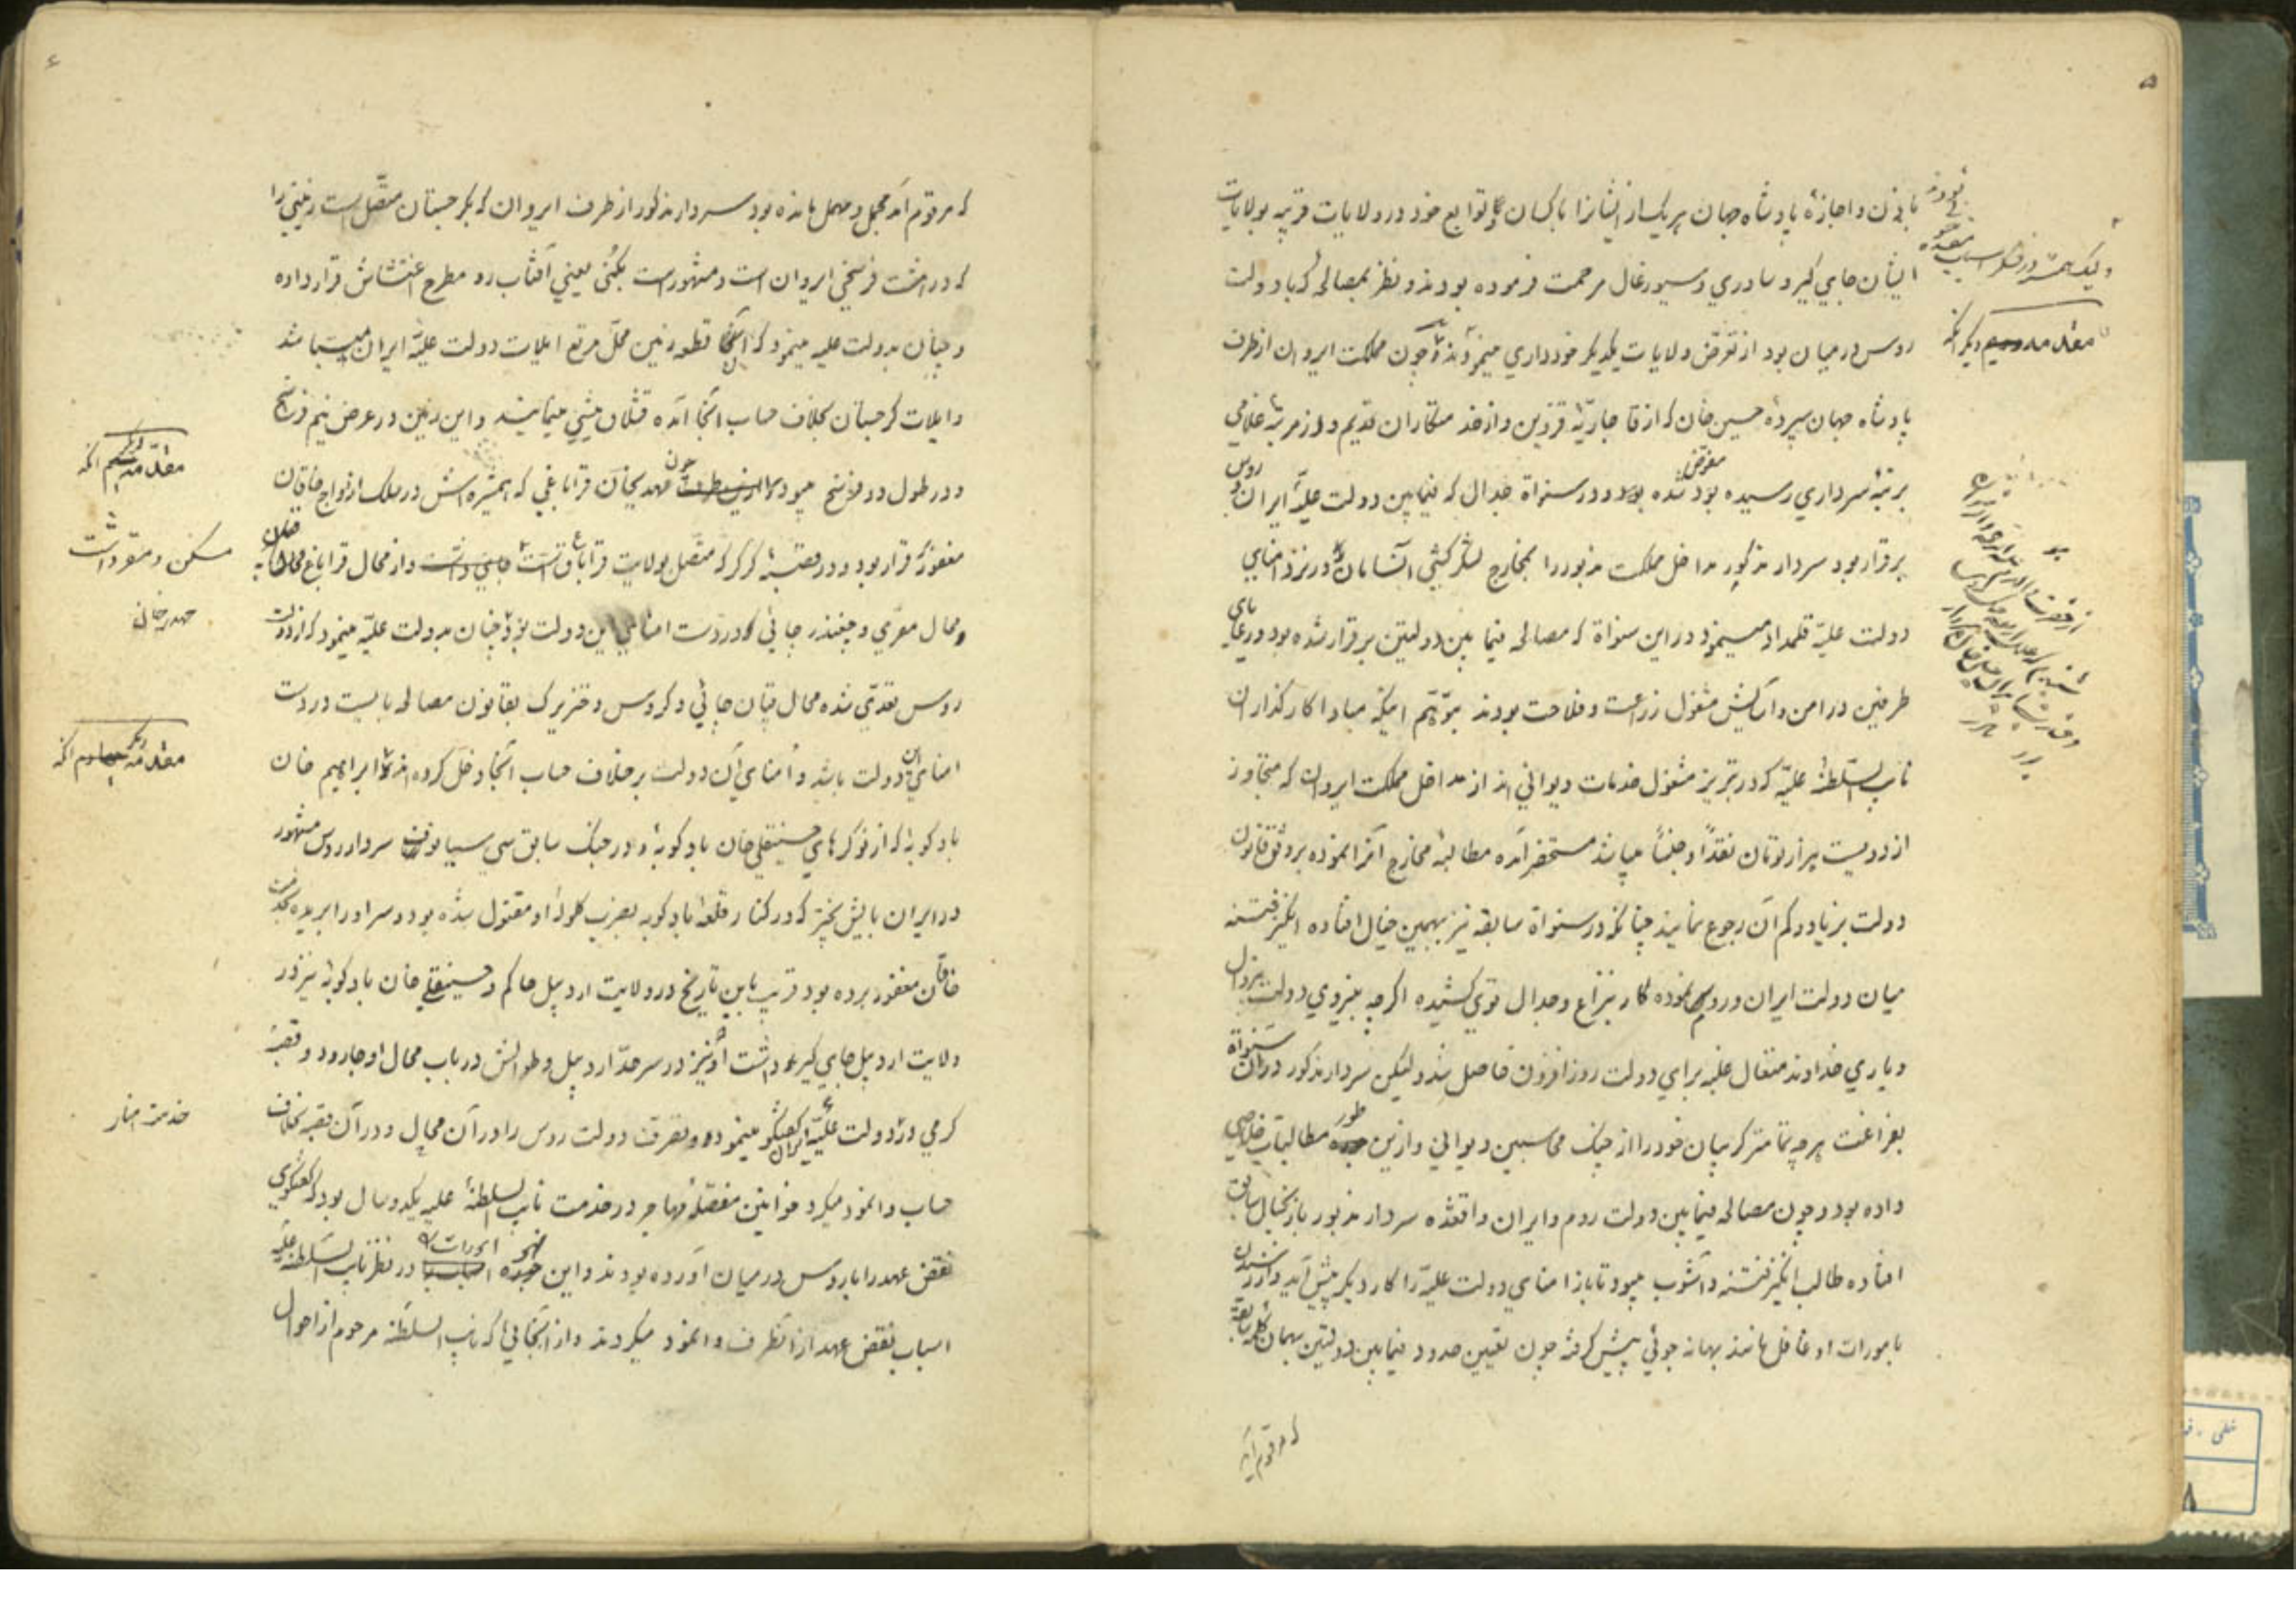 ۵
باذن و اجازهٔ پادشاه جهان هر یک از ایشانرا با کسان و توابع خود در ولایات قریبه بولایات
ایشان جایی گیر و سادری و سیورغال مرحمت فرموده بودند و نظر بمصالحه که با دولت
روس در میان بود از تعرّض ولایات یکدیگر خودداری مینمودند و چون مملکت ایروان از طرف
پادشاه جهان سپردهٔ حسین خان که از قاجاریّهٔ قزوین و از خدمتکاران قدیم و از مرتبهٔ غلامی
برتبهٔ سرداری رسیده بود شده بود و در سنواة جدال که فیمابین دولت علیّهٔ ایران و روس
برقرار بود سردار مذکور مداخل مملکت مزبور را بمخارج لشکرکشی آنسامان و در نزد امنای
دولت علیّه قلمداد مینمود در این سنواة که مصالحه فیما بین دولتین برقرار شده بود و رعایای
طرفین در امن و آسایش مشغول زراعت و فلاحت بودند بتوهّم اینکه مبادا کارگذاران
نایب السّلطنهٔ علیّه که در تبریز مشغول خدمات دیوانی اند از مداخل مملکت ایروان که متجاوز
از دویست هزار تومان نقداً و جنساً میباشد مستحضر آمده مطالبهٔ مخارج آنرا نموده بر وفق قانون
دولت بزیاد و کم آن رجوع نمایند چنانکه در سنواة سابقه نیز بهمین خیال افتاده انگیز فتنه
میان دولت ایران و روس نموده کار بنزاع و جدال قوی کشیده اگرچه بنیروی دولت بیزوال
و یاری خداوند متعال غلبه برای دولت روزافزون حاصل شد ولیکن سردار مذکور در آن سنواة
بفراغت هرچه تمامتر گریبان خود را از چنگ محاسبین دیوانی و ازین طور مطالبات خلاصی
داده بود و چون مصالحه فیمابین دولت روم و ایران واقعشده سردار مزبور باز بخیال سابق
افتاده طالب انگیز فتنه و آشوب میبود تا باز امنای دولت علیّه را کار دیگر پیش آید و از رسیدن
بامورات او غافل مانند بهانه جوئی پیش گرفته چون تعیین حدود فیمابین دولتین بهمان
که مرقوم آمد
مقدمه دیگر آنکه
۴
که مرقوم آمد مجمل و مهمل مانده بود سردار مذکور از طرف ایروان که بگرجستان متّصل است زمینی را
که در هشت فرسخی ایروان است و مشهور است بگنی یعنی آفتاب رو مطرح اغتشاش قرار داده
و چنان بدولت علیه مینمود که آنجا قطعه زمین محلّ مرتع ایلات دولت علیّهٔ ایران میباشد
و ایلات گرجستان بخلاف حساب آنجا آمده قشلاق میشی مینمایند و این زمین در عرض نیم فرسخ
و در طول دو فرسخ میبود چون مهدیخان قراباغی که همشیره اش در سلک ازواج خاقان
مغفور قرار بود و در قصبهٔ کرکر که متّصل بولایت قراباغ است و از محال قراباغ محال قپان
و محال مغری و چغندر چائی که در دست امنای این دولت بود چنان بدولت علیّه مینمود که از دولت
روس تعدّی شده محال قپان چائی و کروس و قنزیرک بقانون مصالحه بایست در دست
امنای این دولت باشد و اُمنای آن دولت برخلاف حساب آنجا دخل کرده اند ابراهیم خان
بادکوبهٔ که از نوکرهای حسینقلی خان بادکوبهٔ و در جنگ سابق سی سیانوف سردار روس مشهور
در ایران بایش پختر که در کنار قلعهٔ بادکوبه بضرب گلولهٔ او مقتول شده بود و سر او را بریده بخدمت
خاقان مغفور برده بود قریب باین تاریخ در ولایت اردبیل حاکم و حسینقلی خان بادکوبهٔ نیز در
ولایت اردبیل جایی گیر داشت او نیز در سرحدّ اردبیل و طوالش در باب محال اوجارود و قصبهٔ
کرمی در دولت علیّهٔ ایران گفتگو مینمود و تصرف دولت روس را در آن محال و در آن قصبه بخلاف
حساب وانمود میکرد خوانین مفصّلهٔ مهاجر در خدمت نایب السلطنهٔ علیه یکدو سال بود که گفتگوی
نقض عهد را با روس در میان آورده بودند و این نحو امورات را در نظر نایب السّلطنهٔ علیّه
اسباب نقض عهد از آنطرف وانمود میکردند و از آنجائی که نایب السلطنه مرحوم از احوال
مقدمه دیگر آنکه
مسکن و مقر داشت
مهدیخان
مقدمه دیگر آنکه